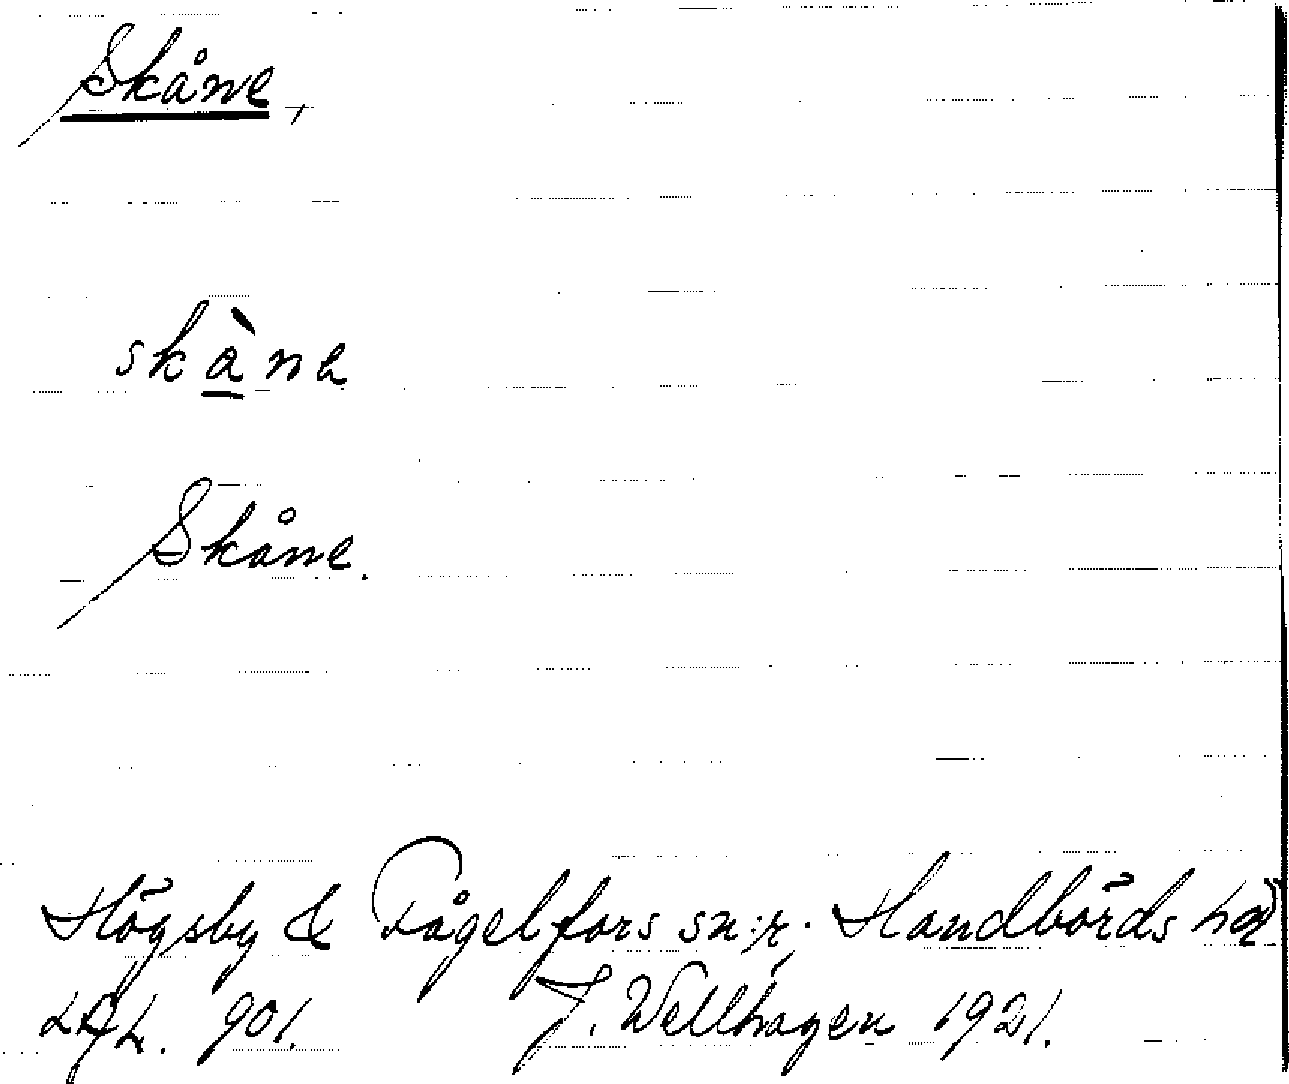 Skåne,
skàne
Skåne.
Högsby & Fågelfors sn:r. Handbörds hd
901. J. Wellhagen 1921.